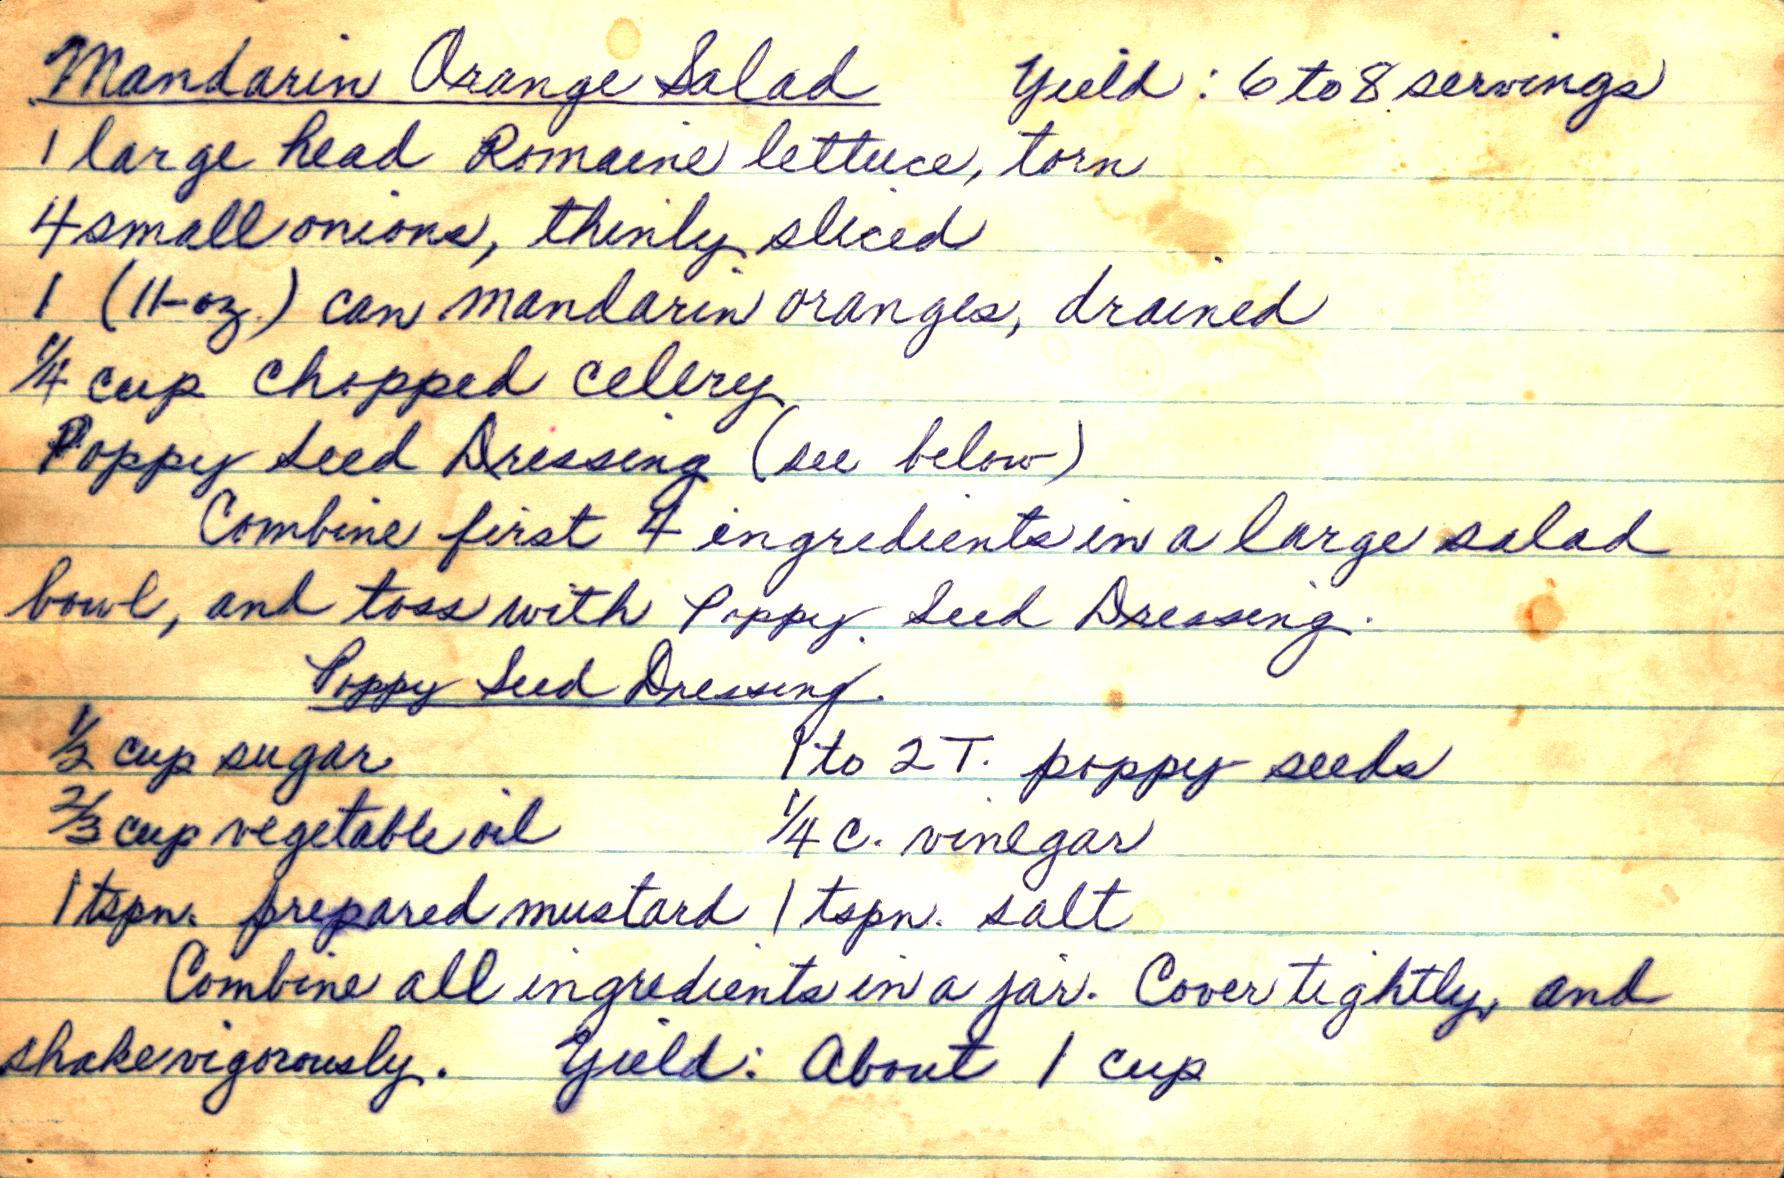 Mandarin Orange Salad Yield: 6 to 8 servings
1 large head Romaine lettuce, torn
4 small onions, thinly sliced
1 (11-oz.) can mandarin oranges, drained
1/4 cup chopped celery
Poppy Seed Dressing (see below)
Combine first 4 ingredients in a large salad
bowl, and toss with Poppy Seed Dressing.
Poppy Seed Dressing.
1/2 cup sugar 1 to 2 T. poppy seeds
2/3 cup vegetable oil 1/4 c. vinegar
1 tspn. prepared mustard 1 tspn. salt
Combine all ingredients in a jar. Cover tightly, and
shake vigorously. Yield: About 1 cup